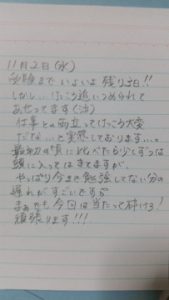 11月2日(水)
受験まで いよいよ 残り3日!!
しかし… けっこう追いつめられて
あせってます(泣)
仕事との両立ってけっこう大変
だな…と実感しております…。
最初の頃に比べたら少しずつは
頭に入ってはきてますが、
やっぱり今まで勉強してない分の
遅れがすごいですね
まぁでも今回は当たって砕けろ!
頑張ります!!!